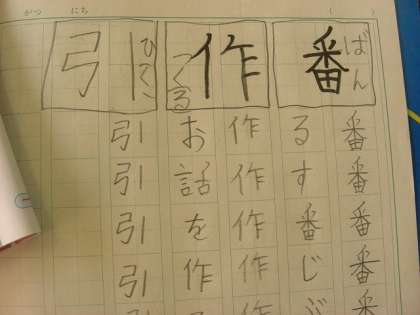 がつ にち ( )
番
ばん
番番番番番
るす番じぶ
作
つくる
作作作作
お話を作
引
ひく
引引引引